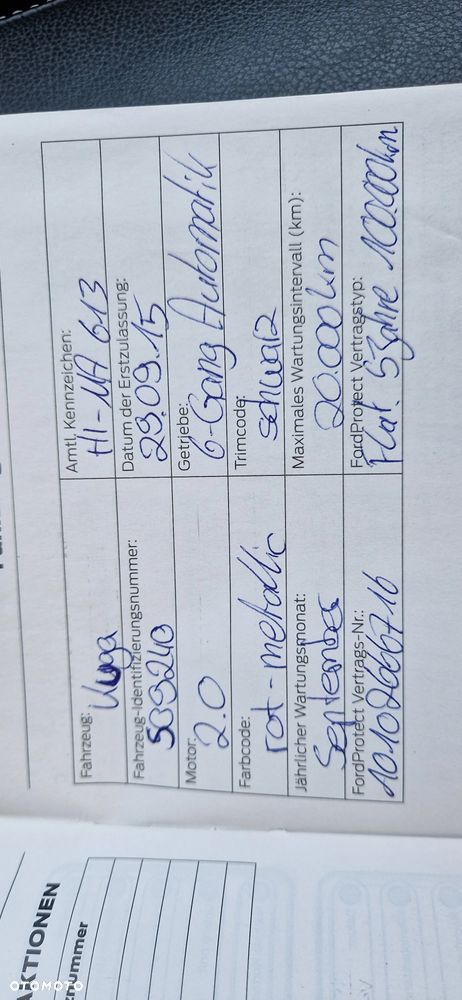 AKTIONEN
nummer
Fahrzeug: Kuga
Amtl. Kennzeichen: HI-MA 613
Fahrzeug-Identifizierungsnummer: 539240
Datum der Erstzulassung: 29.09.15
Motor: 2.0
Getriebe: 6-Gang Automatik
Farbcode: rot-metallic
Trimcode: schwarz
Jährlicher Wartungsmonat: September
Maximales Wartungsintervall (km): 20.000km
FordProtect Vertrags-Nr.:
FordProtect Vertragstyp: Flat. 5 Jahre 100.000km
OTOMOTO